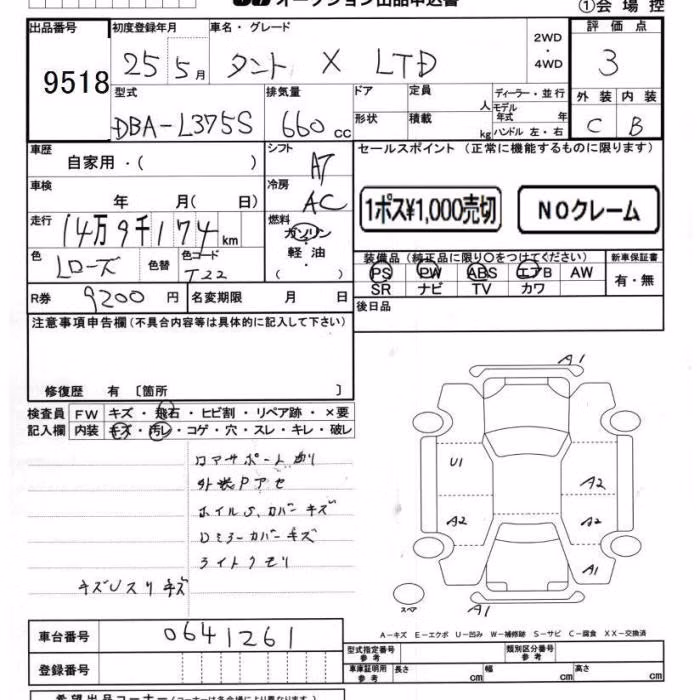 オークション出品申込書
①会場控
出品番号 初度登録年月 車名・グレード 2WD・4WD 評価点
9518 25 5月 タント X LTD 3
型式 排気量 ドア 定員 人 ディーラー・並行 外装 内装
DBA-L375S 660cc 形状 積載 kg モデル年式 年 ハンドル 左・右 C B
車歴 自家用・( ) シフト AT セールスポイント (正常に機能するものに限ります)
車検 年 月( 日) 冷房 AC
1ポス¥1,000売切 NOクレーム
走行 14万9千174km 燃料 ガソリン・軽油・( )
色 Lローズ 色替 色コード T22
装備品 (純正品に限り○をつけてください) 新車保証書
PS PW ABS エアB AW 有・無
SR ナビ TV カワ
R券 9200円 名変期限 月 日
後日品
注意事項申告欄(不具合内容等は具体的に記入して下さい)
修復歴 有 〔箇所 〕
検査員 FW キズ・飛石・ヒビ割・リペア跡・×要
記入欄 内装 キズ・汚レ・コゲ・穴・スレ・キレ・破レ
外装Pアセ
ホイルS、カバーキズ
Dミラーカバーキズ
ライトクモリ
キズUスリキズ
A1
U1
A2
A2
A2
A1
A1
スペア
A-キズ E-エクボ U-凹み W-補修跡 S-サビ C-腐食 XX-交換済
車台番号 0641261
型式指定番号 参考 類別区分番号 参考
登録番号
車庫証明用 参考 長さ cm 幅 cm 高さ cm
希望出品コーナー(コーナーは各会場により異なります)